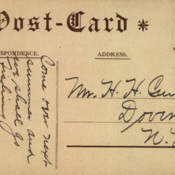 Post-Card *
RESPONDENCE.
ADDRESS.
Come over next
summer and
we shall go
fishing
Mr. H. H.
Dover
N.